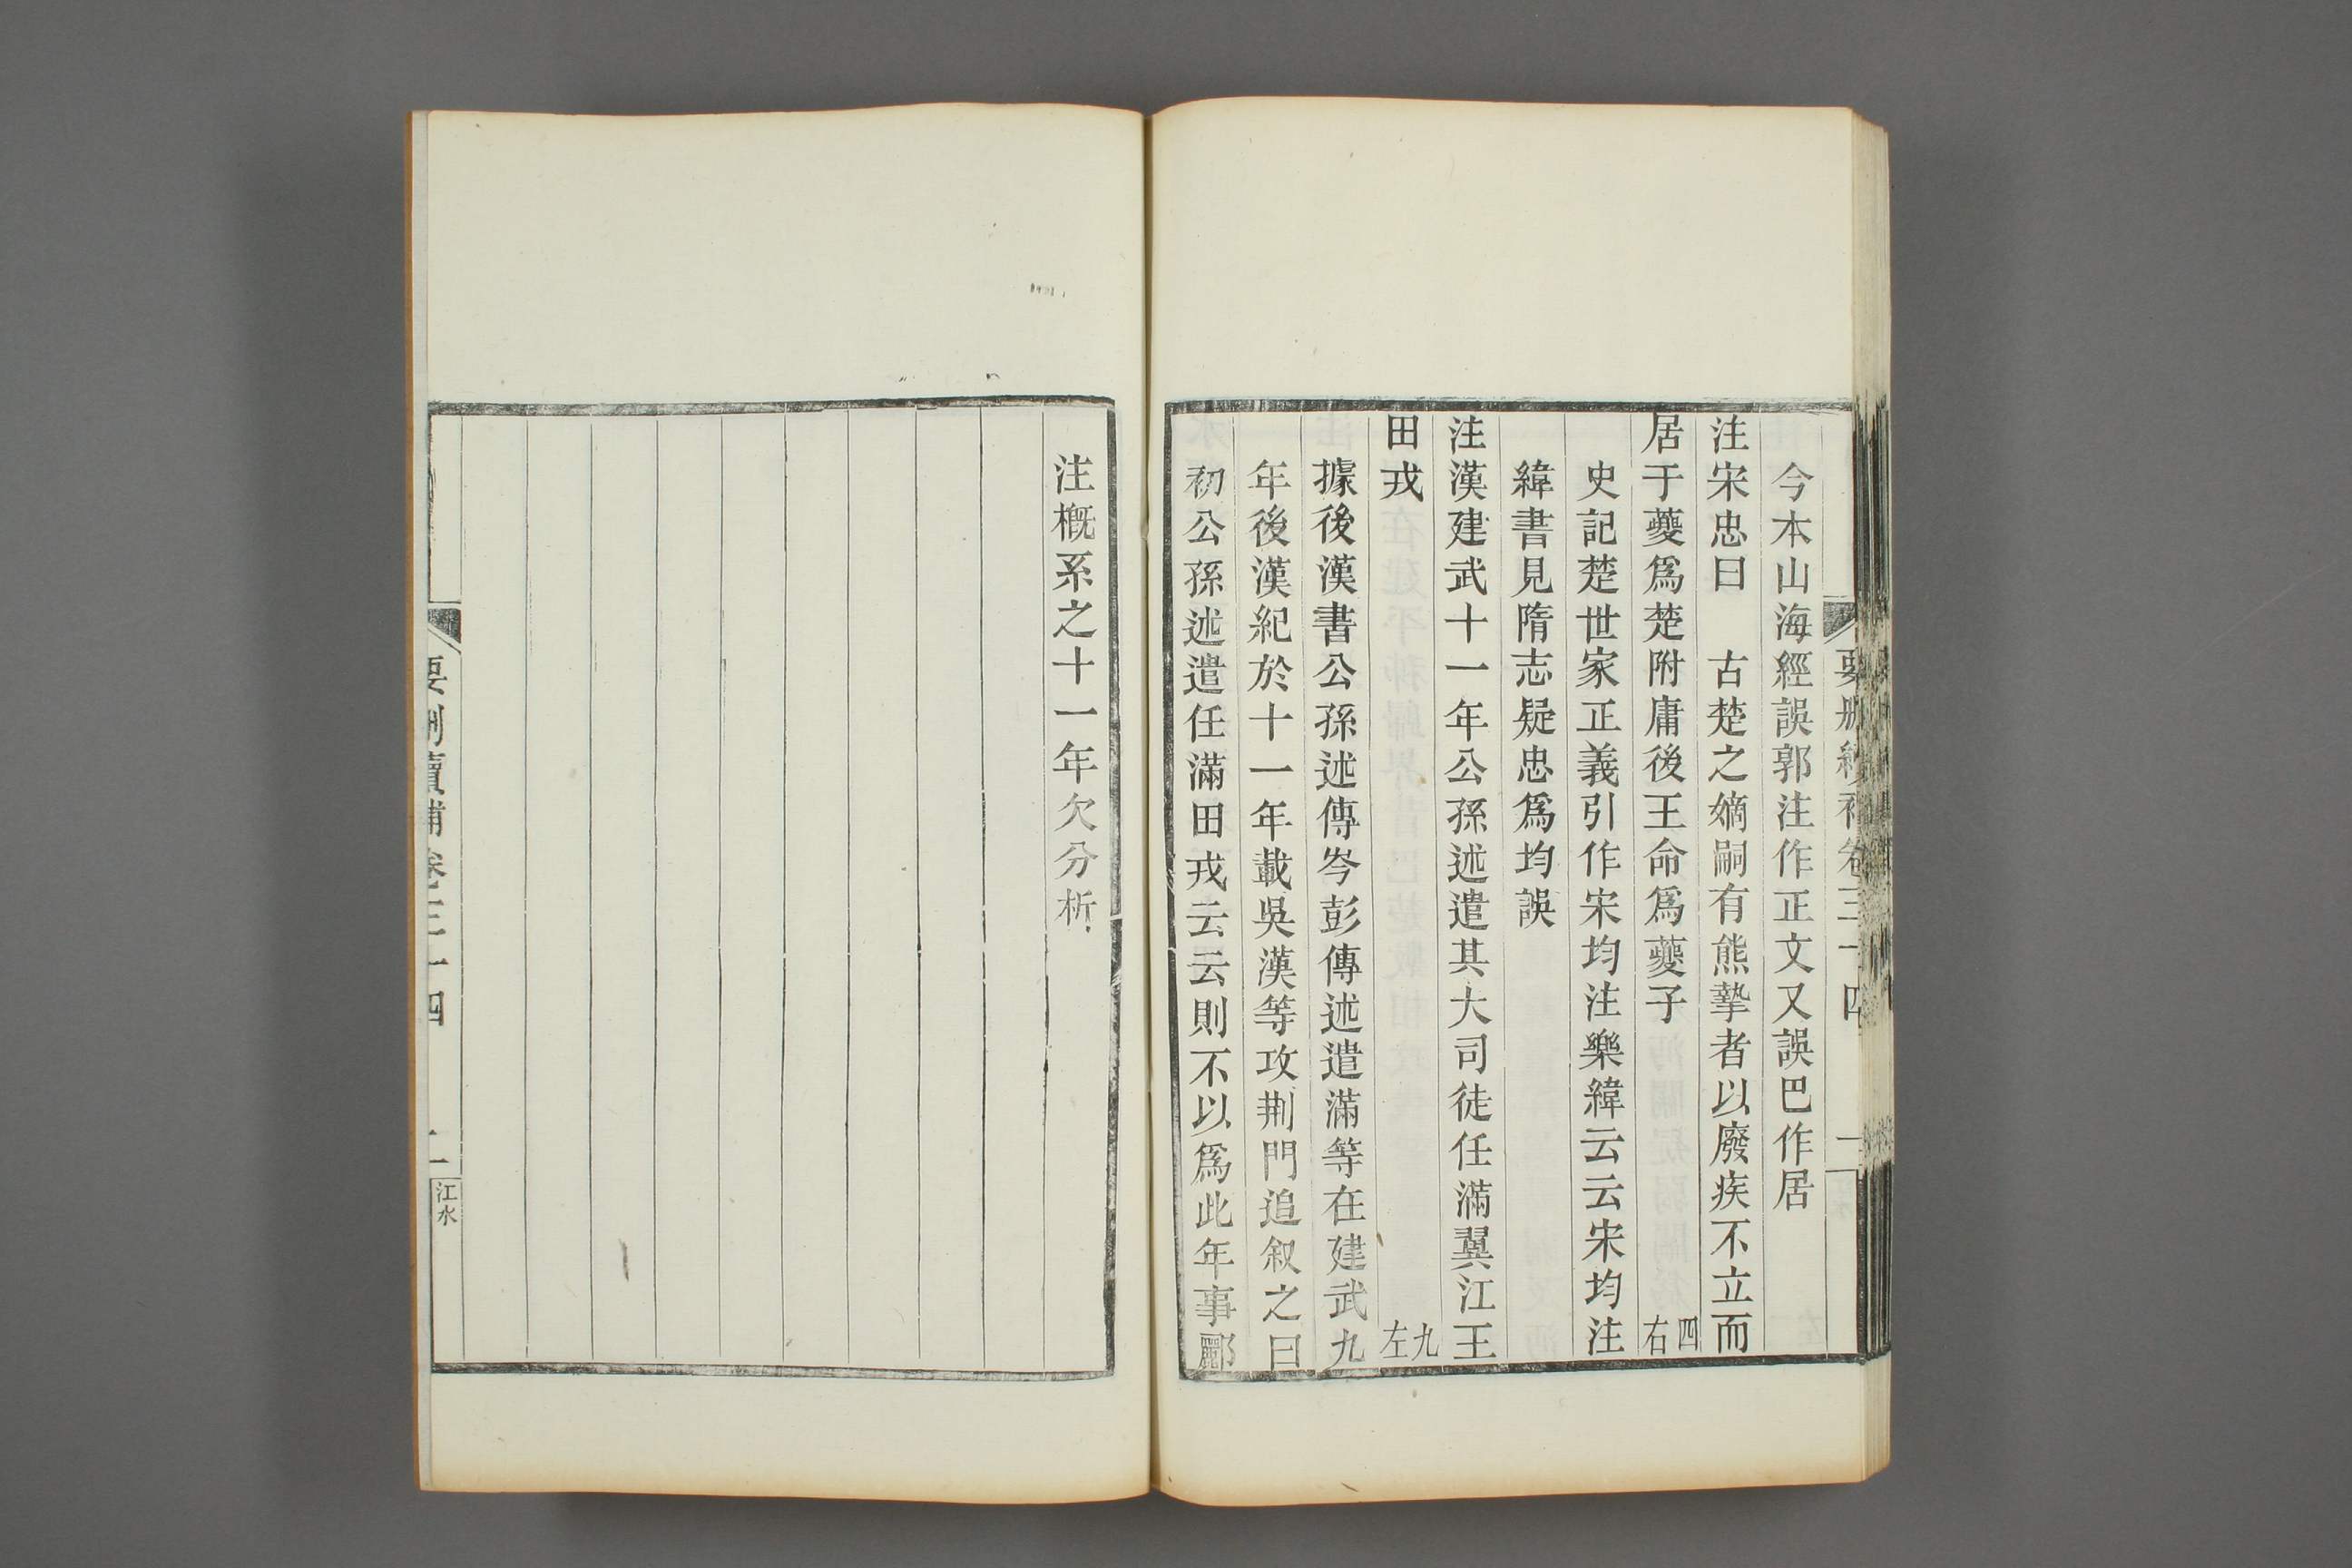 今本山海經誤郭注作正文又誤巴作居
注宋忠曰　古楚之嫡嗣有熊摯者以廢疾不立而
居于夔爲楚附庸後王命爲夔子　四右
史記楚世家正義引作宋均注樂緯云云宋均注
緯書見隋志疑忠爲均誤
注漢建武十一年公孫述遣其大司徒任滿翼江王
田戎　九左
據後漢書公孫述傳岑彭傳述遣滿等在建武九
年後漢紀於十一年載吳漢等攻荆門追叙之曰
初公孫述遣任滿田戎云云則不以爲此年事酈
注概系之十一年欠分析
要刪續補卷三十四
江水